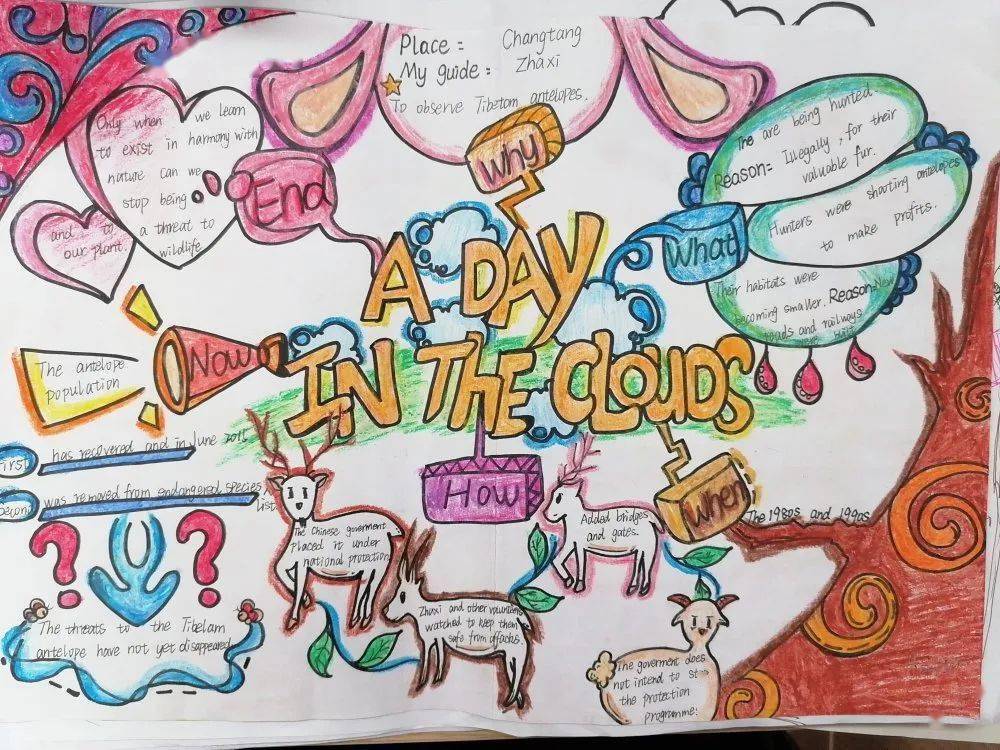 Place = Changtang
My guide = Zhaxi
To observe Tibetan antelopes.
Why
Only when we learn
to exist in harmony with
nature can we
stop being
a threat to
wildlife
and to
our plant.
End
A DAY
IN THE CLOUDS
What
The are being hunted.
Reason= Illegally, for their
valuable fur.
Hunters were shooting antelopes
to make profits.
Their habitats were
becoming smaller. Reason= New
roads and railways
Now
The antelope
population
First has recovered and in June
Second was removed from endangered species
list
? ?
The threats to the Tibetam
antelope have not yet disappeared
How
The Chinese goverment
placed it under
national protection
Added bridges
and gates.
Zhaxi and other volunteers
watched to keep them
safe from attacks.
When
The 1980s and 1990s
The goverment does
not intend to
the protection
programme.